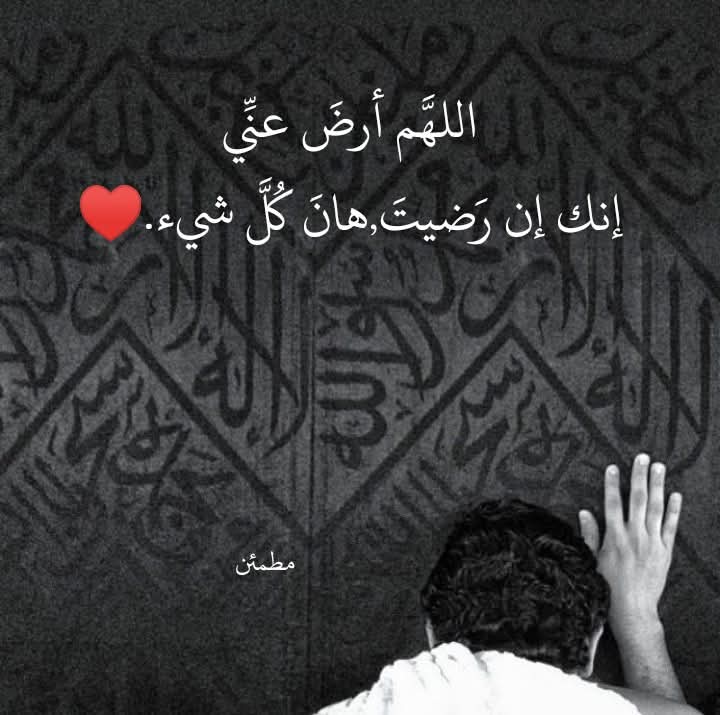 اللهَّم أرضَ عنِّي
إنك إن رَضيتَ,هانَ كُلَّ شيء.♥️
مطمئن